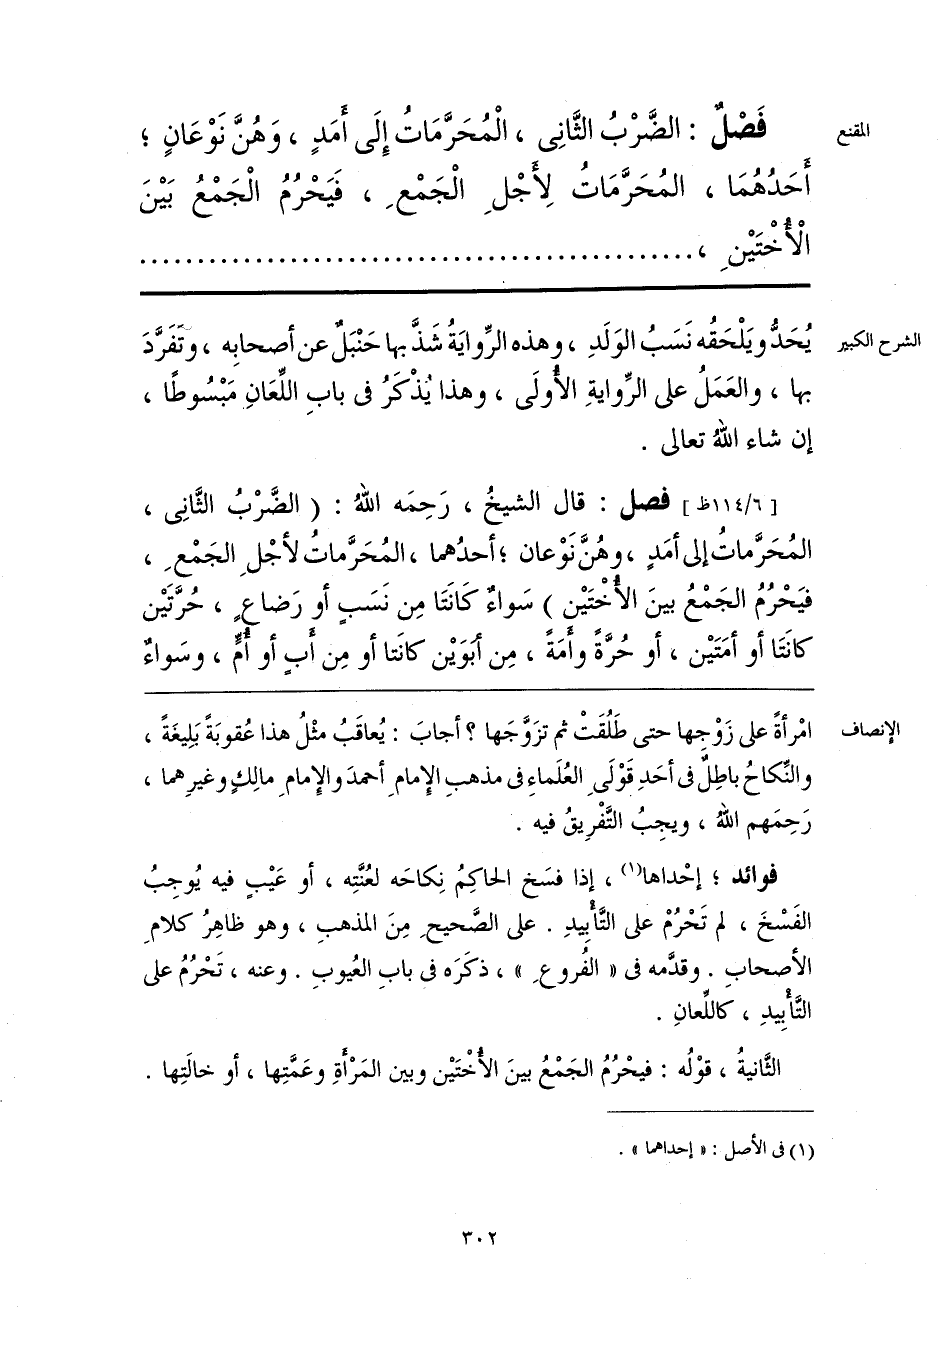 المقنع
فَصْلٌ : الضَّرْبُ الثَّانِى ، الْمُحَرَّمَاتُ إِلَى أَمَدٍ ، وَهُنَّ نَوْعَانِ ؛
أَحَدُهُمَا ، الْمُحَرَّمَاتُ لِأَجْلِ الْجَمْعِ ، فَيَحْرُمُ الْجَمْعُ بَيْنَ
الْأُخْتَيْنِ ، ................................................
الشرح الكبير
يُحَدُّ ويَلْحَقُه نَسَبُ الوَلَدِ ، وهذه الرِّوايَةُ شَذَّ بها حَنْبَلٌ عن أصحابِه ، وتَفَرَّدَ
بها ، والعَمَلُ على الرِّوايةِ الأُولَى ، وهذا يُذْكَرُ فى بابِ اللِّعَانِ مَبْسُوطًا ،
إن شاء اللهُ تعالى .
[ ١١٤/٦ظ ] فصل : قال الشيخُ ، رَحِمَه اللهُ : ( الضَّرْبُ الثَّانِى ،
المُحَرَّماتُ إلى أمَدٍ ، وهُنَّ نَوْعان ؛ أحدُهما ، المُحَرَّماتُ لأجْلِ الجَمْعِ ،
فيَحْرُمُ الجَمْعُ بينَ الأُخْتَيْنِ ) سَواءٌ كانَتَا مِن نَسَبٍ أو رَضاعٍ ، حُرَّتَيْن
كانَتَا أو أمَتَيْن ، أو حُرَّةً وأمَةً ، مِن أبَوَيْن كانَتا أو مِن أبٍ أو أُمٍّ ، وسَواءٌ
الإنصاف
امْرأةً على زَوْجِها حتى طَلُقَتْ ثم تزَوَّجَها ؟ أجابَ : يُعاقَبُ مثْلُ هذا عُقوبَةً بَلِيغَةً ،
والنِّكاحُ باطِلٌ فى أحَدِ قَوْلَىِ العُلَماءِ فى مذهبِ الإِمامِ أحمدَ والإِمامِ مالِكٍ وغيرِهما ،
رَحِمَهم اللهُ ، ويجِبُ التَّفْريقُ فيه .
فوائد ؛ إحْداها(١) ، إذا فسَخ الحاكِمُ نِكاحَه لعُنَّتِه ، أو عَيْبٍ فيه يُوجِبُ
الفَسْخَ ، لم تَحْرُمْ على التَّأْبيدِ . على الصَّحيحِ مِنَ المذهبِ ، وهو ظاهِرُ كلامِ
الأصحابِ . وقدَّمه فى « الفُروعِ » ، ذكَرَه فى بابِ العُيوبِ . وعنه ، تَحْرُمُ على
التَّأْبيدِ ، كاللِّعانِ .
الثَّانيةُ ، قوْلُه : فيحْرُمُ الجَمْعُ بينَ الأُخْتَيْنِ وبين المَرْأةِ وعَمَّتِها ، أو خالَتِها .
(١) فى الأصل : « إحداهما » .
٣٠٢